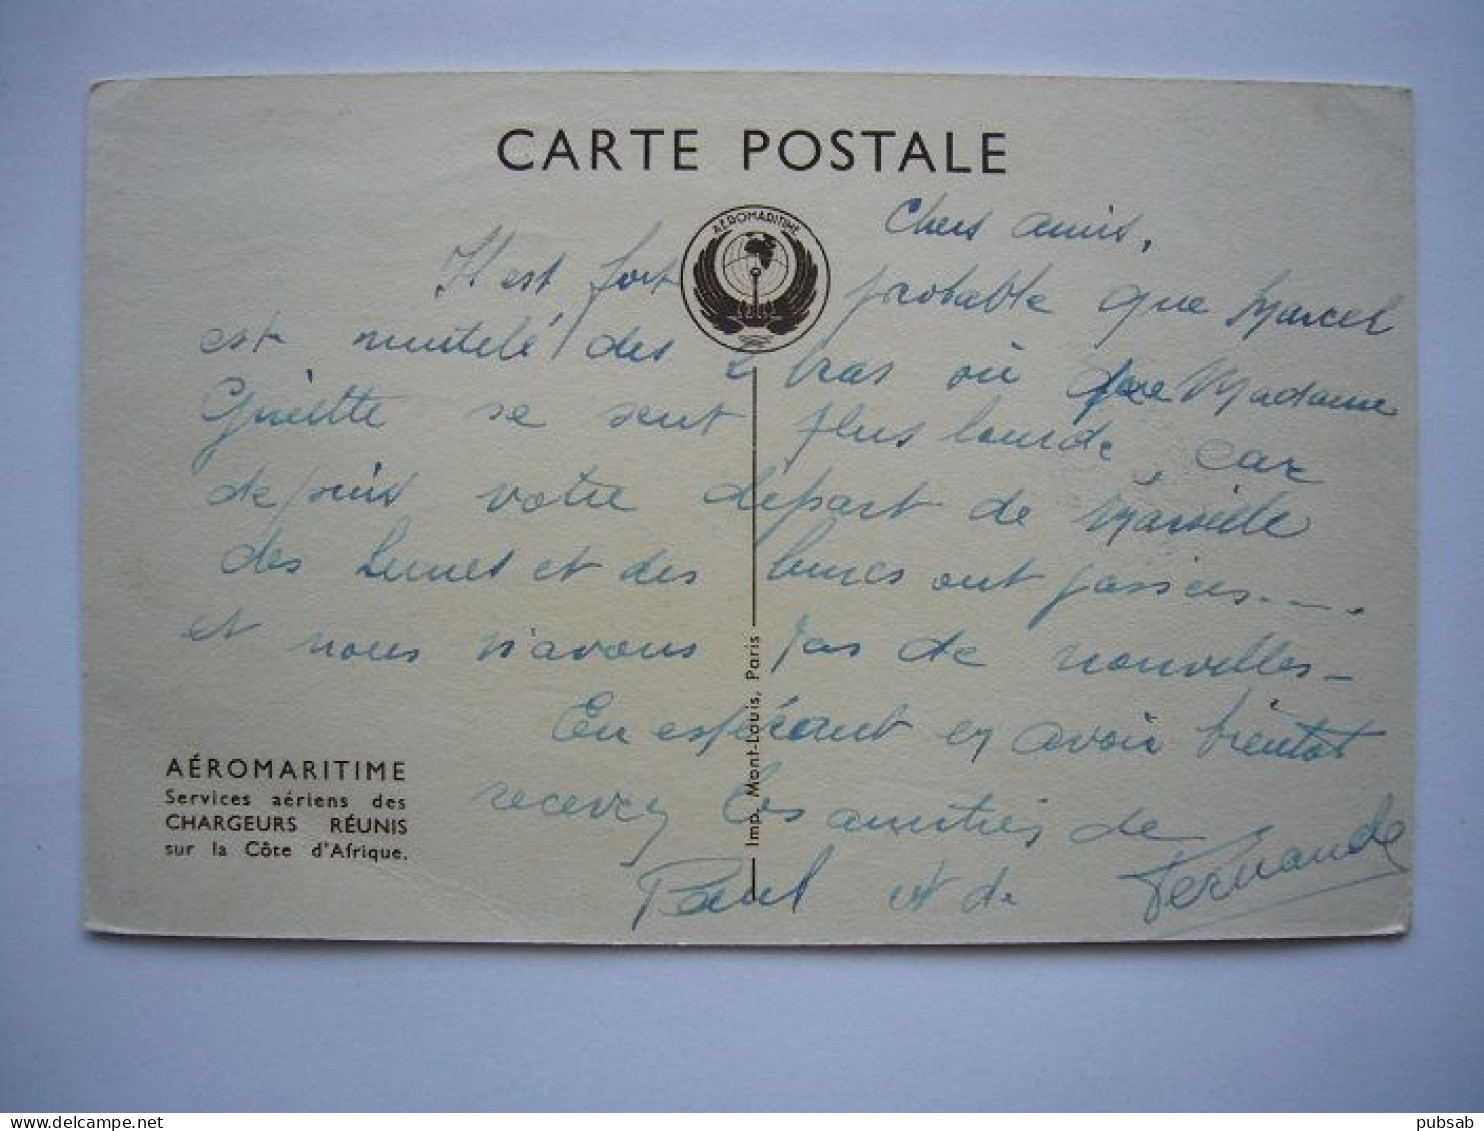 CARTE POSTALE
AÉROMARITIME
Chers amis,
Il est fort probable que Marcel
est mutilé des 2 bras où que Madame
se sent plus lourde, car
depuis votre départ de Marseille
des lunes et des lunes ont passées....
et nous n'avons pas de nouvelles -
En espérant en avoir bientot
recevez les amitiés de
Paul et de Fernande
AÉROMARITIME
Services aériens des
CHARGEURS RÉUNIS
sur la Côte d'Afrique.
Imp. Mont-Louis, Paris
pubsab